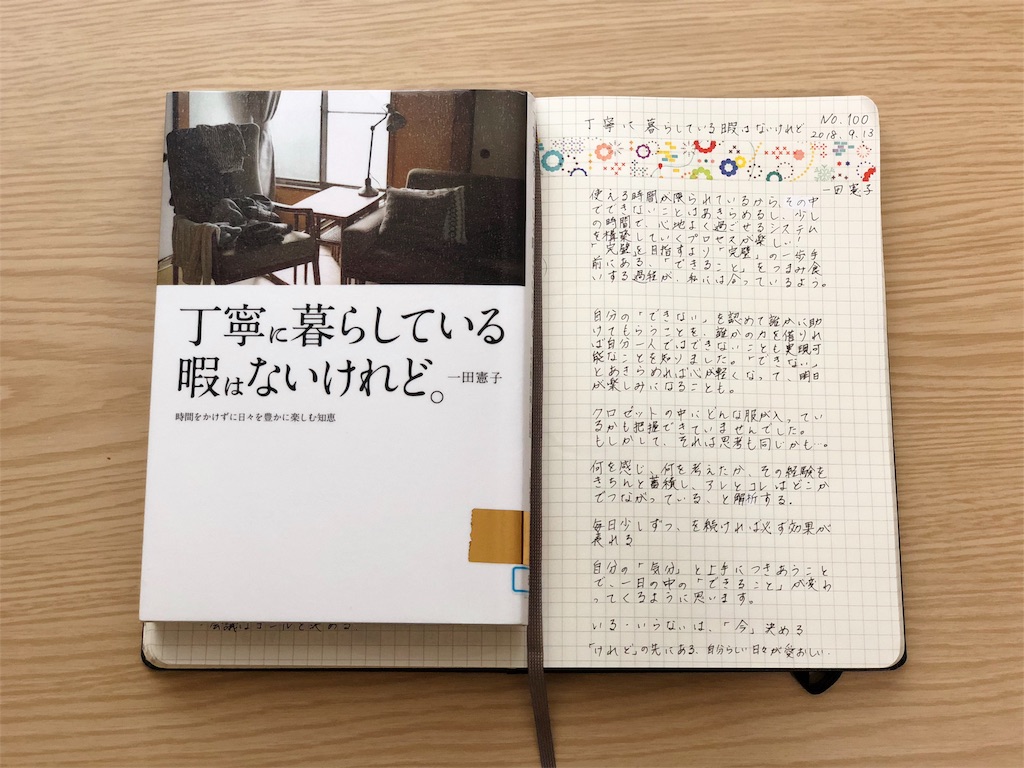 丁寧に暮らしている
暇はないけれど。
一田憲子
時間をかけずに日々を豊かに楽しむ知恵
No.100
丁寧に暮らしている暇はないけれど
2018.9.13
一田憲子
使える時間が限られているから、その中
でできないことはあきらめるし、少し
の時間で、心地よく過ごせるシステム
を構築していくプロセスが楽しい!
「完璧を目指すより「完璧」の一歩手
前にある、「できること」をつまみ食
いする過程が、私には合っているよう。
自分の「できない」を認めて誰かに助
けてもらうことを、誰かの力を借りれ
ば自分一人ではできないことも実現可
能なことを知りました。「できない」
とあきらめれば心が軽くなって、明日
が楽しみになることも。
クロゼットの中にどんな服が入ってい
るかも把握できていませんでした。
もしかして、それは思考も同じかも…。
何を感じ、何を考えたか、その経験を
きちんと蓄積し、アレとコレはどこか
でつながっている、と解析する。
毎日少しずつ、を続ければ必ず効果が
表れる
自分の「気分」と上手につきあうこと
で、一日の中の「できること」が変わ
ってくるように思います。
いる・いらないは、「今」決める
「けれど」の先にある、自分らしい日々が愛おしい.